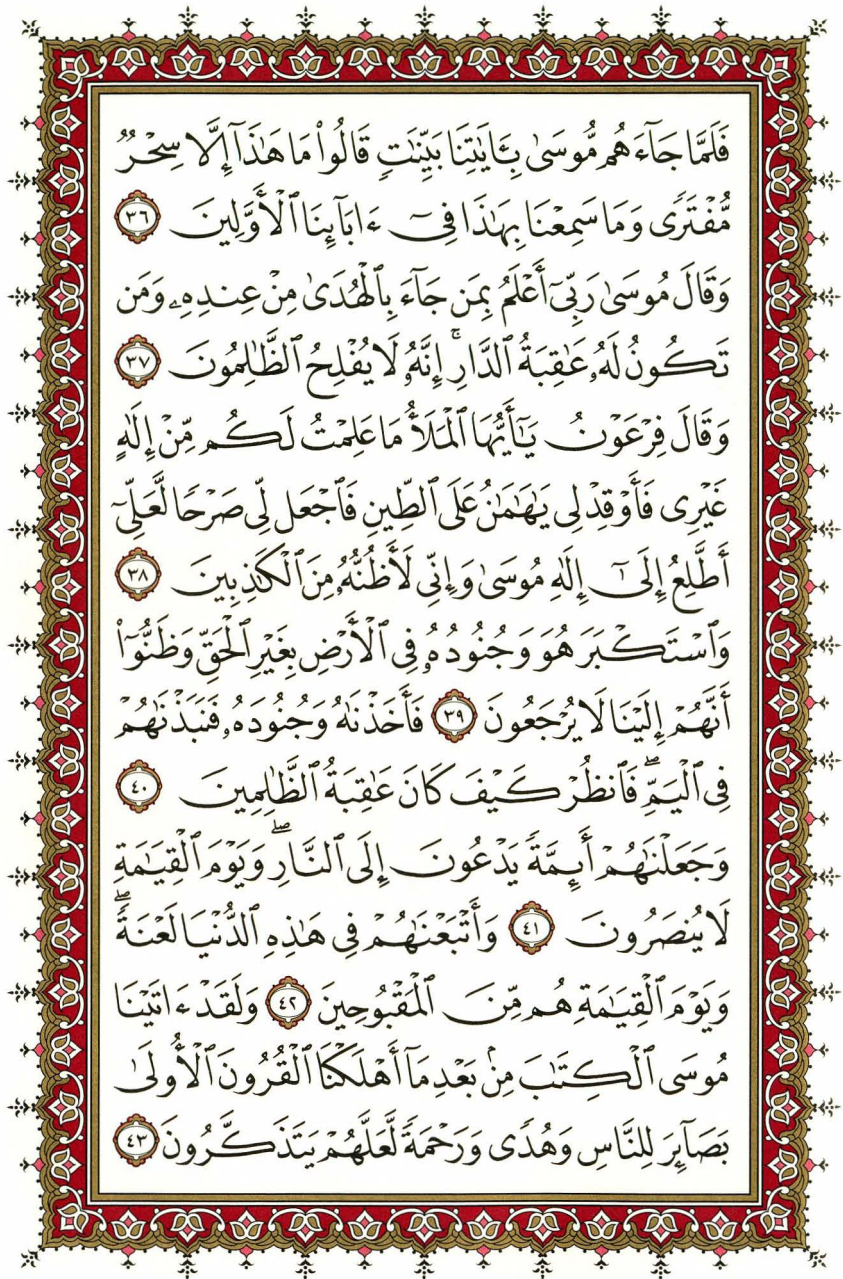 فَلَمَّا جَآءَهُم مُّوسَىٰ بِـَٔايَٰتِنَا بَيِّنَٰتٍ قَالُوا۟ مَا هَٰذَآ إِلَّا سِحْرٌ
مُّفْتَرًى وَمَا سَمِعْنَا بِهَٰذَا فِىٓ ءَابَآئِنَا ٱلْأَوَّلِينَ ٣٦
وَقَالَ مُوسَىٰ رَبِّىٓ أَعْلَمُ بِمَن جَآءَ بِٱلْهُدَىٰ مِنْ عِندِهِۦ وَمَن
تَكُونُ لَهُۥ عَٰقِبَةُ ٱلدَّارِ ۚ إِنَّهُۥ لَا يُفْلِحُ ٱلظَّٰلِمُونَ ٣٧
وَقَالَ فِرْعَوْنُ يَٰٓأَيُّهَا ٱلْمَلَأُ مَا عَلِمْتُ لَكُم مِّنْ إِلَٰهٍ
غَيْرِى فَأَوْقِدْ لِى يَٰهَٰمَٰنُ عَلَى ٱلطِّينِ فَٱجْعَل لِّى صَرْحًا لَّعَلِّىٓ
أَطَّلِعُ إِلَىٰٓ إِلَٰهِ مُوسَىٰ وَإِنِّى لَأَظُنُّهُۥ مِنَ ٱلْكَٰذِبِينَ ٣٨
وَٱسْتَكْبَرَ هُوَ وَجُنُودُهُۥ فِى ٱلْأَرْضِ بِغَيْرِ ٱلْحَقِّ وَظَنُّوٓا۟
أَنَّهُمْ إِلَيْنَا لَا يُرْجَعُونَ ٣٩ فَأَخَذْنَٰهُ وَجُنُودَهُۥ فَنَبَذْنَٰهُمْ
فِى ٱلْيَمِّ ۖ فَٱنظُرْ كَيْفَ كَانَ عَٰقِبَةُ ٱلظَّٰلِمِينَ ٤٠
وَجَعَلْنَٰهُمْ أَئِمَّةً يَدْعُونَ إِلَى ٱلنَّارِ ۖ وَيَوْمَ ٱلْقِيَٰمَةِ
لَا يُنصَرُونَ ٤١ وَأَتْبَعْنَٰهُمْ فِى هَٰذِهِ ٱلدُّنْيَا لَعْنَةً ۖ
وَيَوْمَ ٱلْقِيَٰمَةِ هُم مِّنَ ٱلْمَقْبُوحِينَ ٤٢ وَلَقَدْ ءَاتَيْنَا
مُوسَى ٱلْكِتَٰبَ مِنۢ بَعْدِ مَآ أَهْلَكْنَا ٱلْقُرُونَ ٱلْأُولَىٰ
بَصَآئِرَ لِلنَّاسِ وَهُدًى وَرَحْمَةً لَّعَلَّهُمْ يَتَذَكَّرُونَ ٤٣